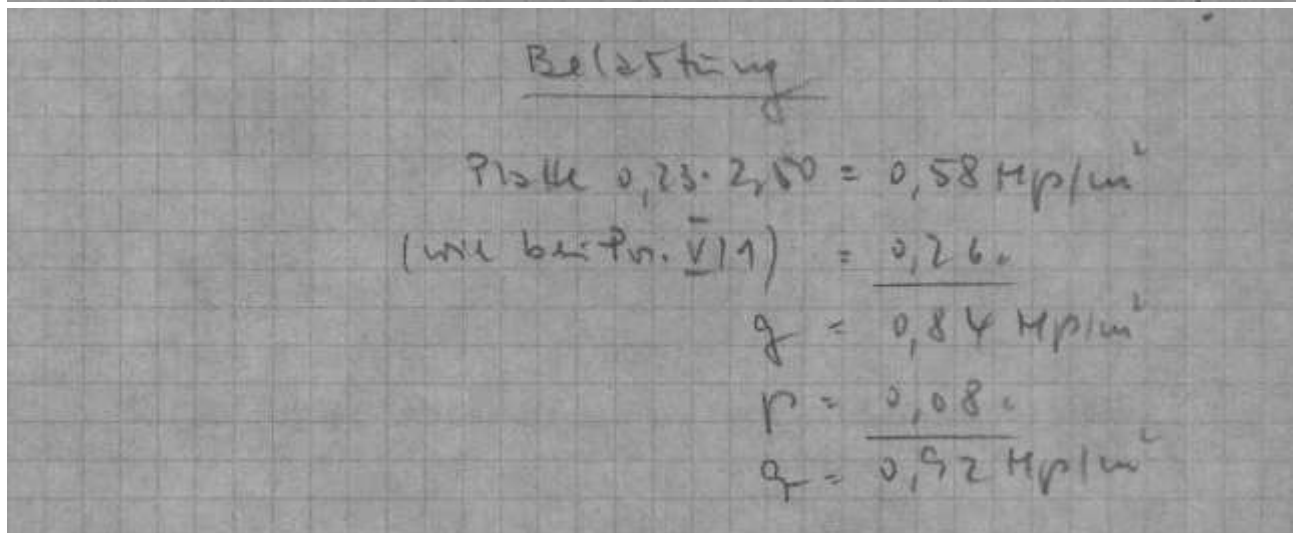 Belastung
Platte 0,23·2,50 = 0,58 Mp/m²
(wie bei Pos. V/1) = 0,26 "
g = 0,84 Mp/m²
p = 0,08 "
q = 0,92 Mp/m²